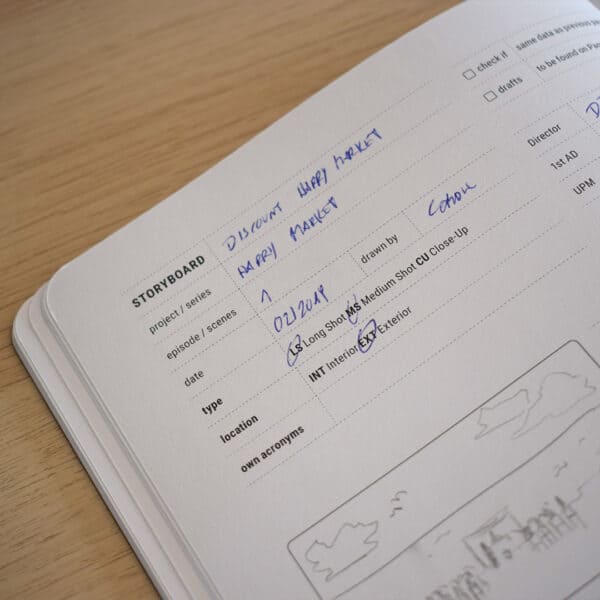 STORYBOARD DISCOUNT HAPPY MARKET
project / series HAPPY MARKET
episode / scenes 1 drawn by
date 02/2019
type LS Long Shot MS Medium Shot CU Close-Up
location INT Interior EXT Exterior
own acronyms
check if same data as previous
drafts to be found on
Director
1st AD
UPM